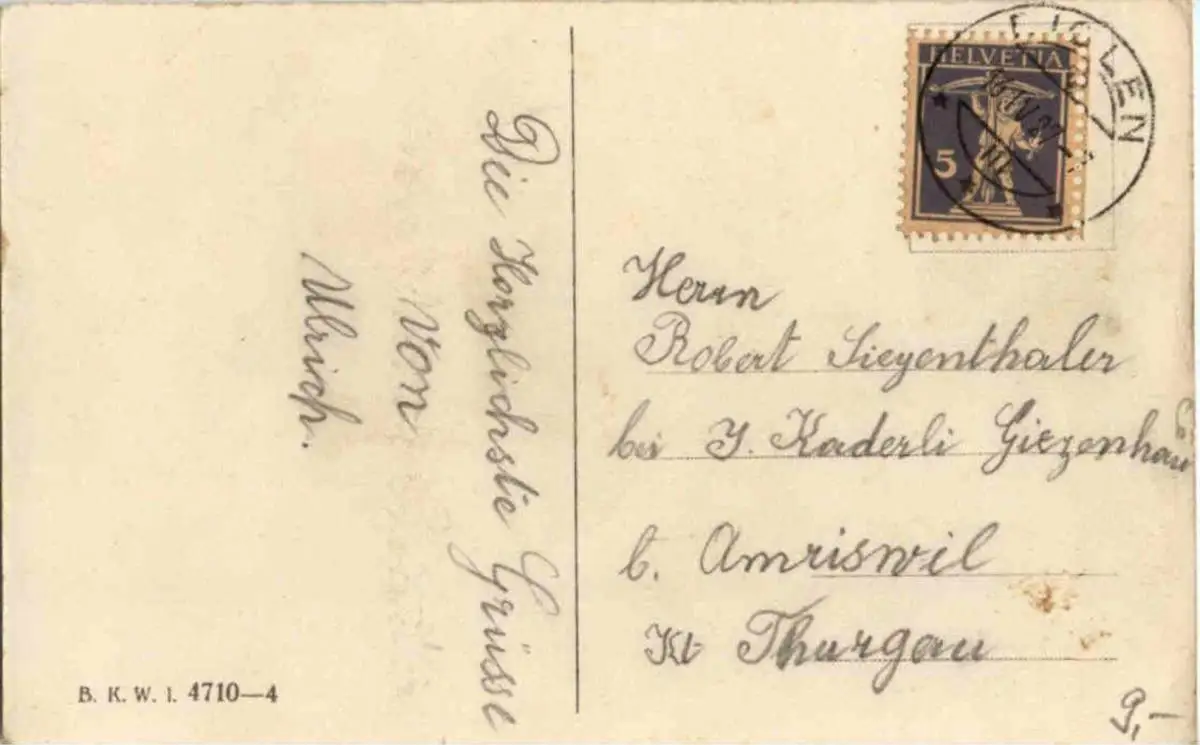 Die Herzlichste Grüsse
von
Ulrich.
B. K. W. I. 4710—4
HELVETIA
5
Herrn
Robert Siegenthaler
bei J. Kaderli Giezenhaus
b. Amriswil
Kt Thurgau
9,—